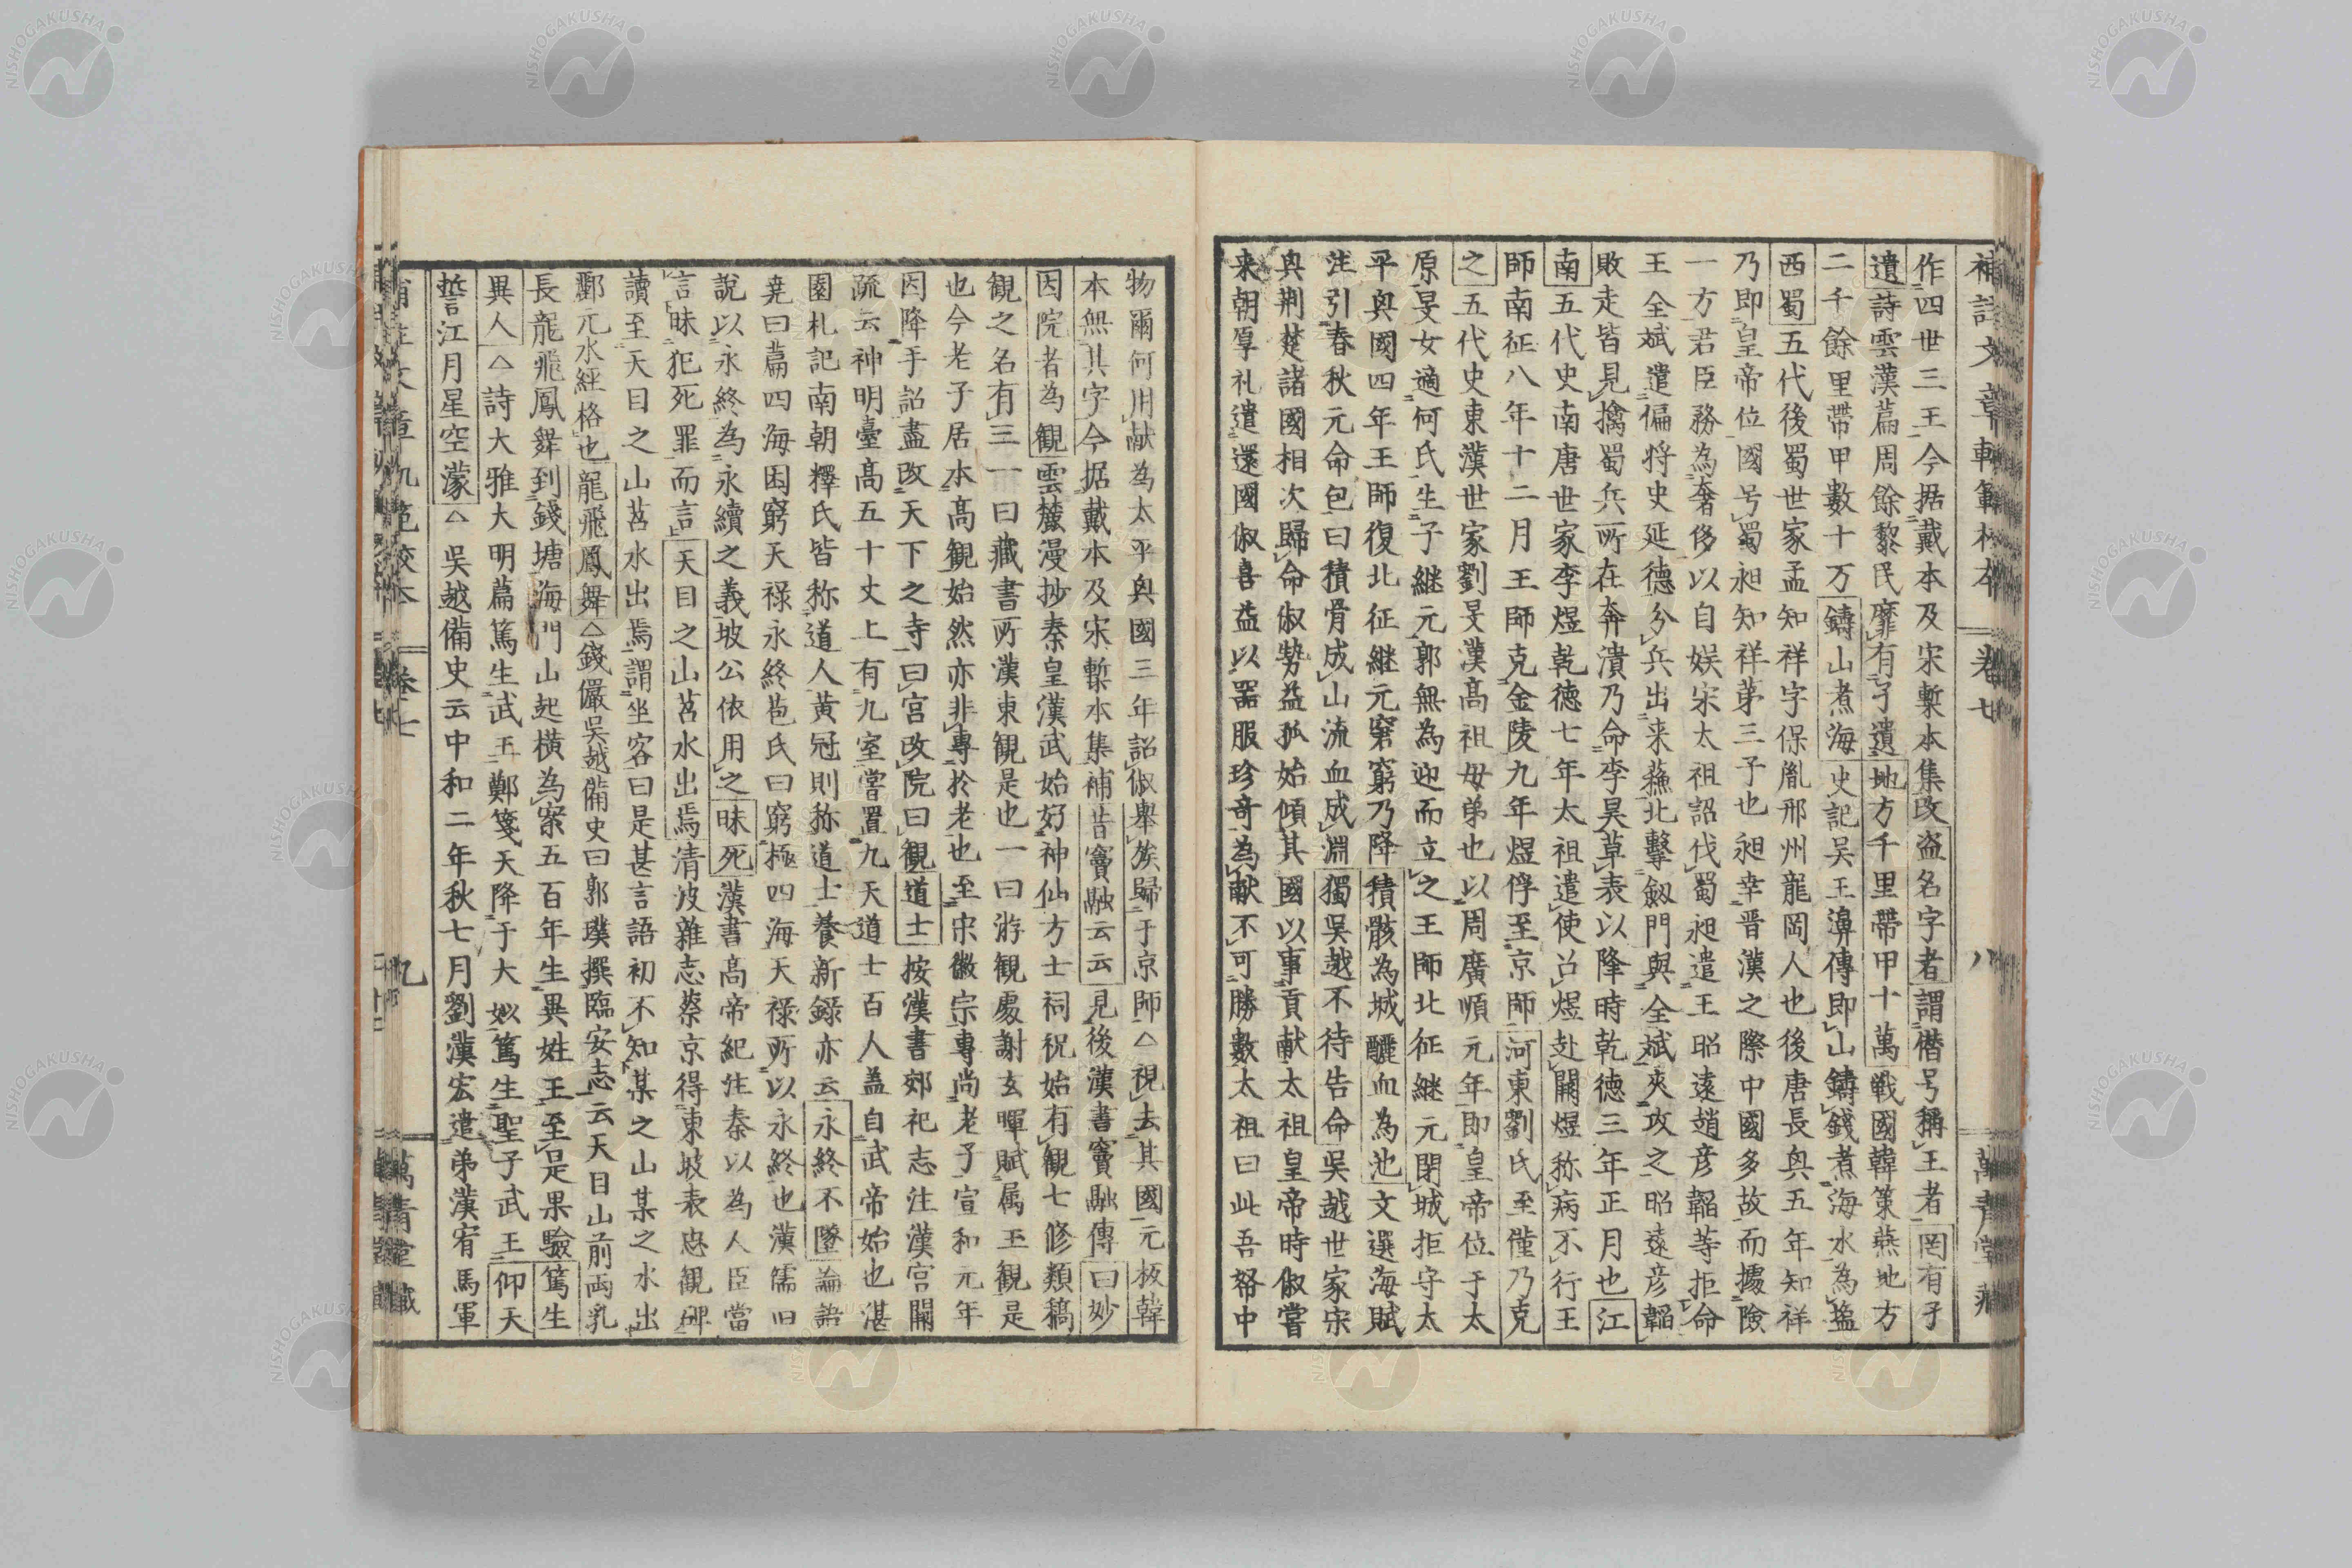 補註文章軌範校本 卷七 八 萬青堂藏
作四世三王今据戴本及宋槧本集改盗名字者謂僭号稱王者罔有孑
遺詩雲漢篇周餘黎民靡有孑遺地方千里帶甲十萬戰國韓策燕地方
二千餘里帶甲數十万鑄山煮海史記吴王濞傳即山鑄錢煮海水為塩
西蜀五代後蜀世家孟知祥字保胤邢州龍岡人也後唐長興五年知祥
乃即皇帝位國号蜀昶知祥苐三子也昶幸晋漢之際中國多故而據險
一方君臣務為奢侈以自娱宋太祖詔伐蜀昶遣王昭遠趙彦韜等拒命
王全斌遣偏將史延德分兵出来蘓北擊劔門與全斌夾攻之昭遠彦韜
敗走皆見擒蜀兵所在奔潰乃命李昊草表以降時乾德三年正月也江
南五代史南唐世家李煜乾德七年太祖遣使召煜赴闕煜称病不行王
師南征八年十二月王師克金陵九年煜俘至京師河東劉氏至僅乃克
之五代史東漢世家劉旻漢高祖母弟也以周廣順元年即皇帝位于太
原旻女適何氏生子継元郭無為迎而立之王師北征継元閉城拒守太
平與國四年王師復北征継元窘窮乃降積骸為城釃血為池文選海賦
注引春秋元命包曰積骨成山流血成淵獨吴越不待告命吴越世家宋
與荆楚諸國相次歸命俶勢益孤始傾其國以事貢献太祖皇帝時俶嘗
来朝厚礼遣還國俶喜益以器服珍奇為献不可勝數太祖曰此吾帑中
物爾何用献為太平與國三年詔俶舉族歸于京師△視去其國元板韓
本無其字今据戴本及宋槧本集補昔竇融云云見後漢書竇融傳曰妙
因院者為観雲麓漫抄秦皇漢武始好神仙方士祠祝始有観七修類稿
観之名有三一曰藏書所漢東観是也一曰游観處謝玄暉賦属玉観是
也今老子居水高観始然亦非專於老也至宋徽宗專尚老子宣和元年
因降手詔盡改天下之寺曰宮改院曰観道士按漢書郊祀志注漢宮闕
疏云神明臺高五十丈上有九室嘗置九天道士百人盖自武帝始也湛
園札記南朝釋氏皆称道人黄冠則称道士養新錄亦云永終不墜論語
堯曰篇四海困窮天禄永終苞氏曰窮極四海天禄所以永終也漢儒旧
說以永終為永續之義坡公依用之昧死漢書高帝紀注秦以為人臣當
言昧犯死罪而言天目之山苕水出焉清波雜志蔡京得東坡表忠観碑
讀至天目之山苕水出焉謂坐客曰是甚言語初不知某之山某之水出
酈元水經格也龍飛鳳舞△錢儼吴越備史曰郭璞撰臨安志云天目山前両乳
長龍飛鳳舞到錢塘海門山起横為案五百年生異姓王至是果驗篤生
異人△詩大雅大明篇篤生武王鄭箋天降于大姒篤生聖子武王仰天
誓江月星空濛△吴越備史云中和二年秋七月劉漢宏遣弟漢宥馬軍
補註文章軌範校本 卷七 九 萬青堂藏